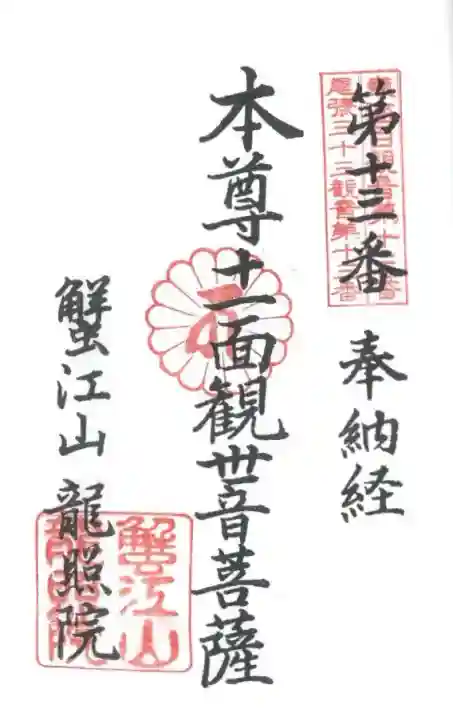 第十三番
奉納経
本尊十一面観世音菩薩
蟹江山 龍照院
尾張三十三観音第十三番
蟹江山
龍照院